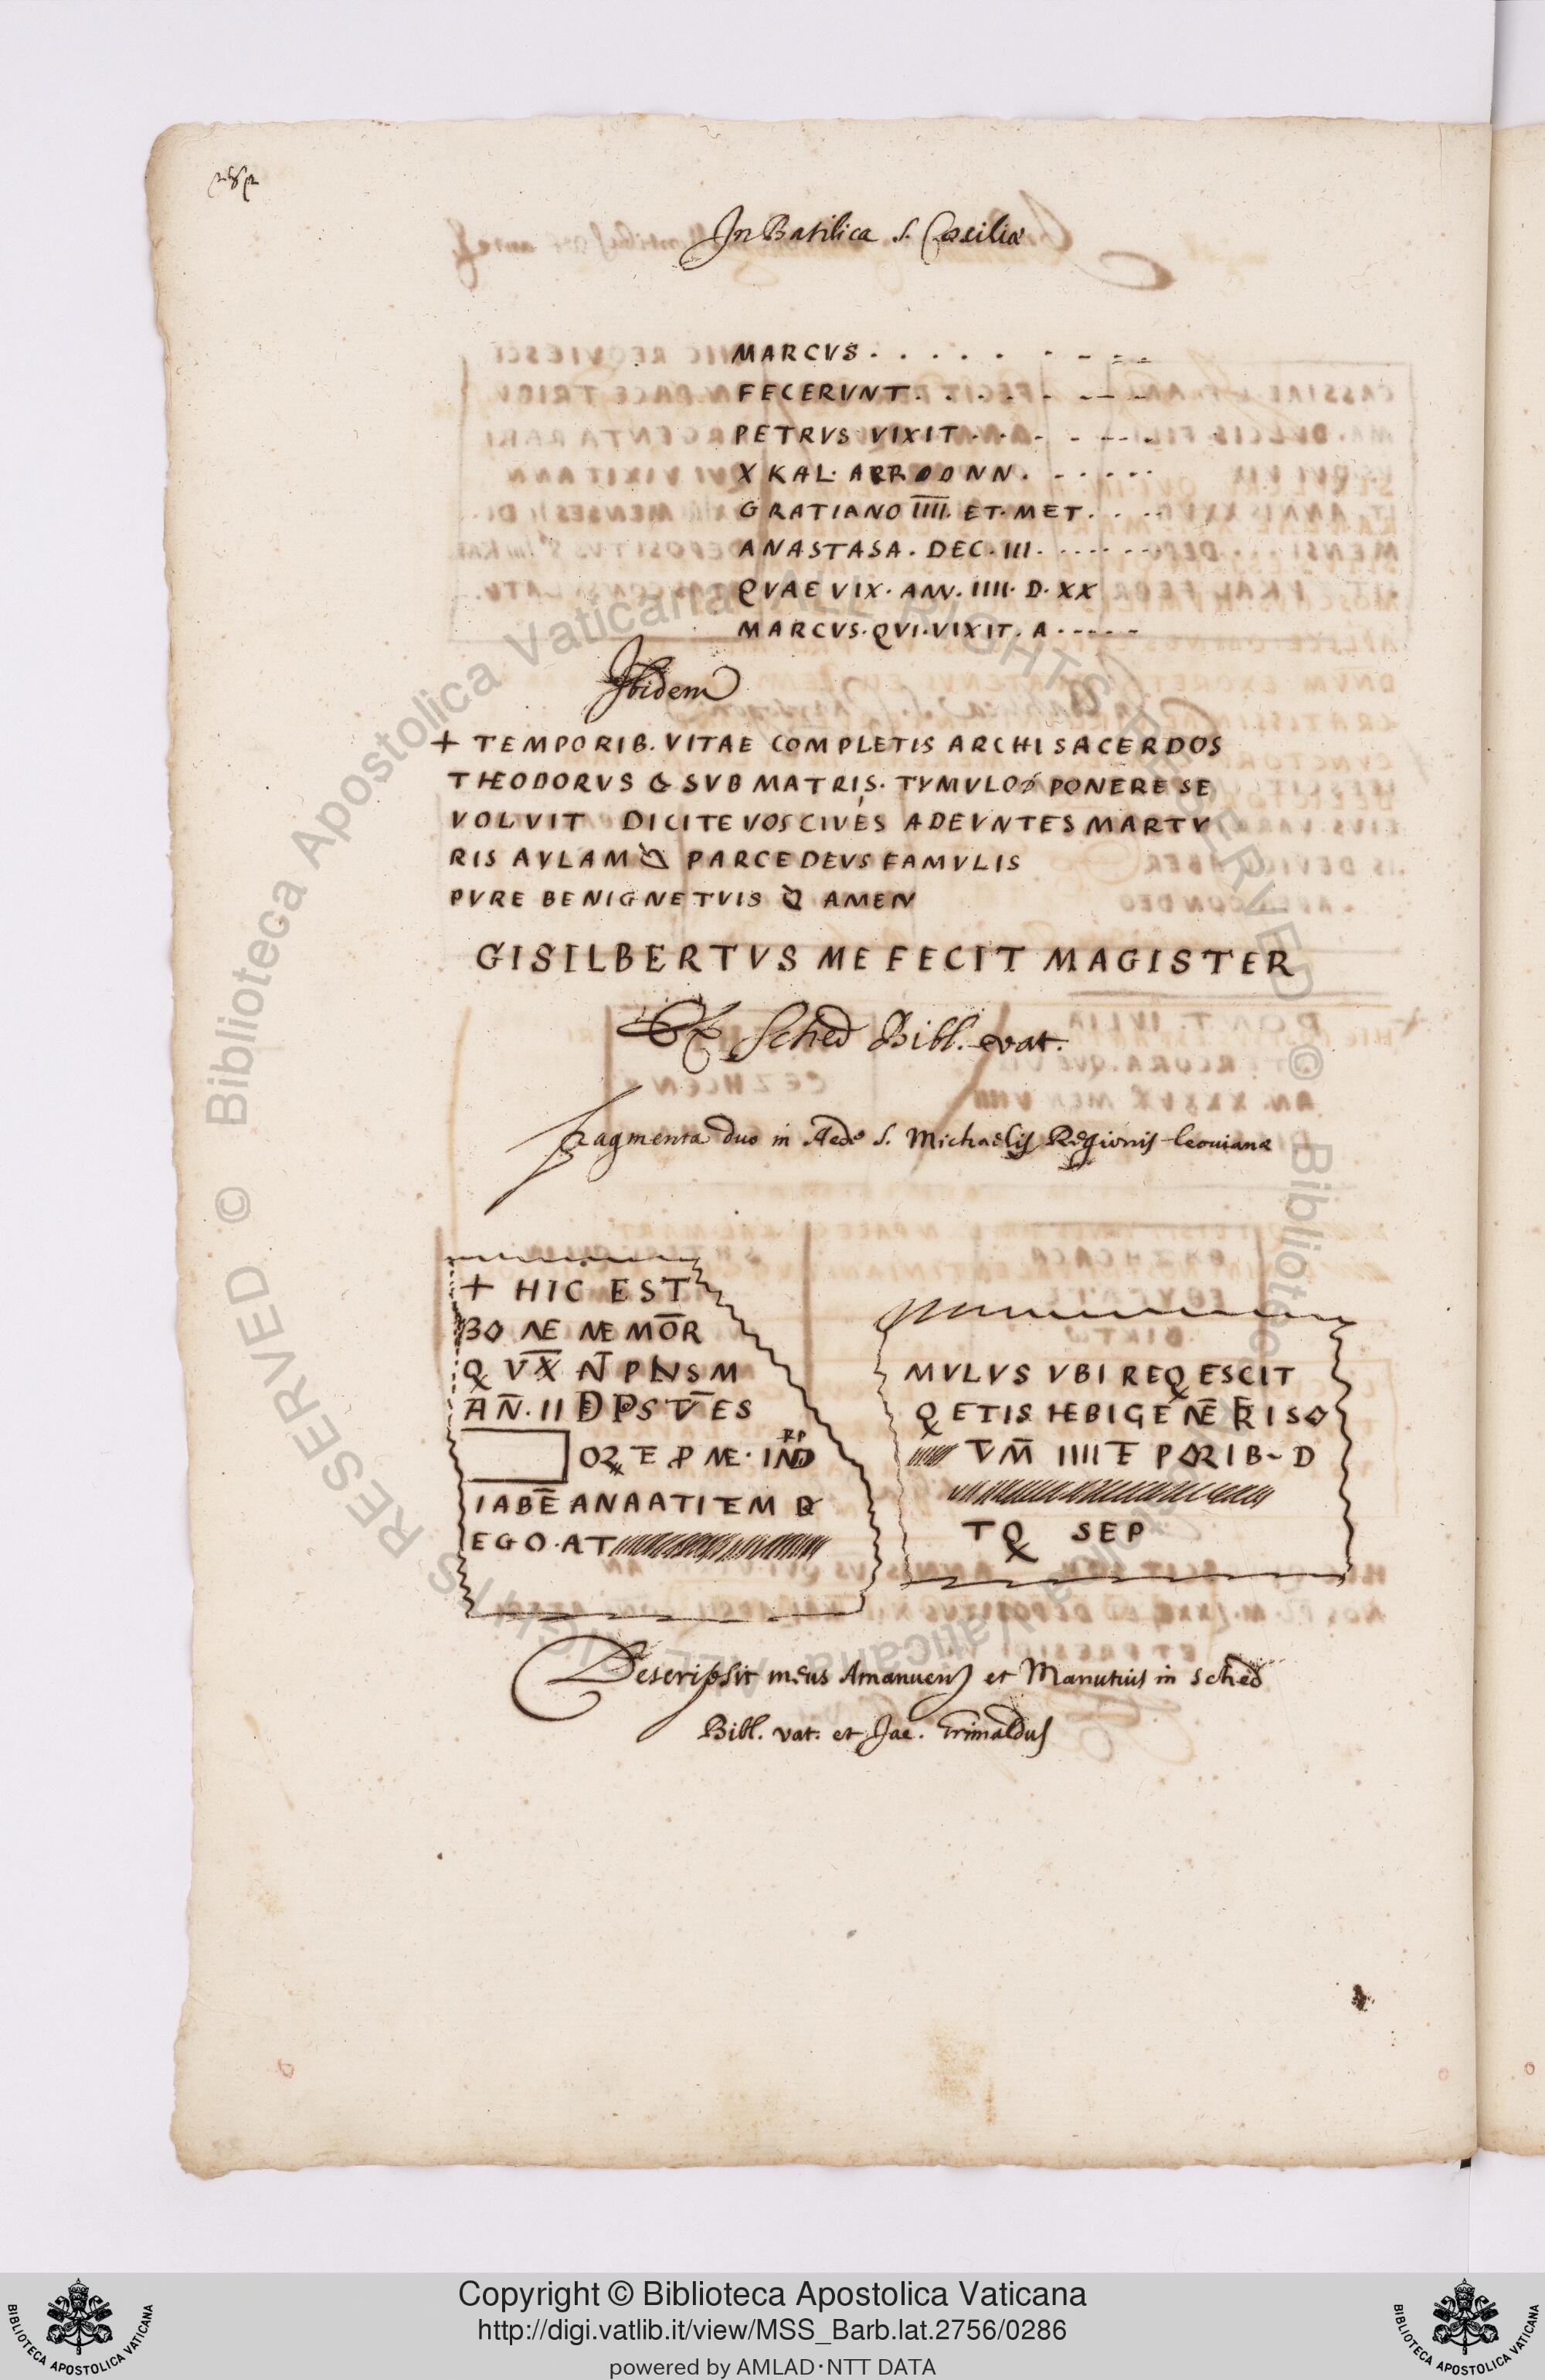 In Basilica S. Cæciliæ
MARCVS . . . . . . - - - -
FECERVNT . . . . . - - - -
PETRVS VIXIT . . . - - - -
X KAL. DD NN. - - - - -
GRATIANO IIII. ET. MET. . . -
ANASTASA. DEC. III. - - - - -
QVAE VIX. ANN. IIII. D. XX
MARCVS. QVI. VIXIT. A. - - - -
Ibidem
+ TEMPORIB. VITAE COMPLETIS ARCHISACERDOS
THEODORVS SVB MATRIS. TYMVLO PONERE SE
VOLVIT DICITE VOS CIVES ADEVNTES MARTV
RIS AVLAM PARCE DEVS FAMVLIS
PVRE BENIGNE TVIS AMEN
GISILBERTVS ME FECIT MAGISTER
Ex Sched Bibl. vat.
Fragmenta duo in Aede S. Michaelis Regionis Leonianæ
+ HIC EST
BO NE MEMOR
Q VX N PNSM
AN. II DPS VES
OR TE P NE. IND
IABE ANAATITEM
EGO. AT
MVLVS VBI REQESCIT
QETIS HEBIGENE RISO
VM IIII TE PORIB~D
TQ SEP
Descripsit meus Amanuens et Manutius in sched
Bibl. vat. et Jac. Grimaldus
© Biblioteca Apostolica Vaticana ALL RIGHTS RESERVED © Biblioteca Apostolica Vaticana ALL RIGHTS RESERVED
Copyright © Biblioteca Apostolica Vaticana
http://digi.vatlib.it/view/MSS_Barb.lat.2756/0286
powered by AMLAD·NTT DATA
BIBLIOTECA APOSTOLICA VATICANA
BIBLIOTECA APOSTOLICA VATICANA